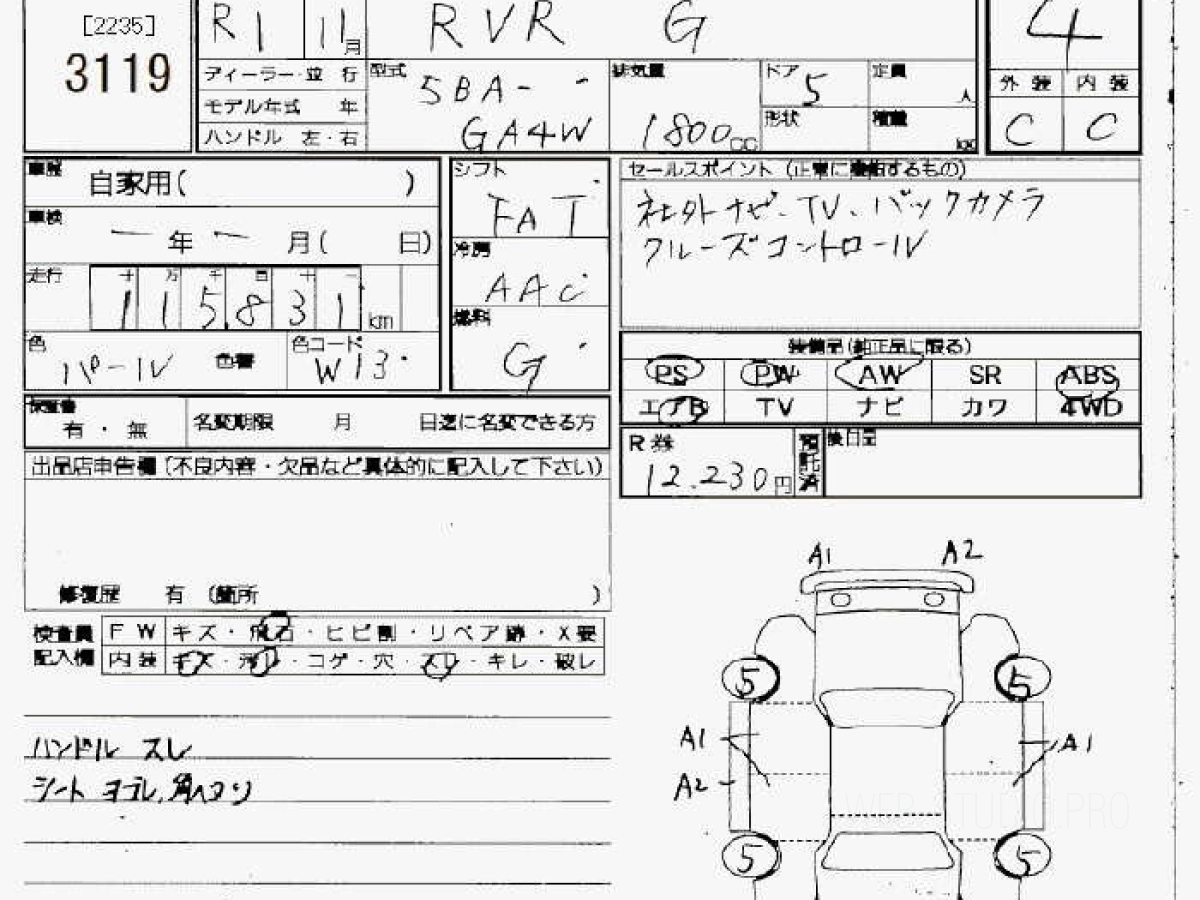 [2235]
3119
R1 11月
RVR G
4
ディーラー・並 行
モデル年式 年
ハンドル 左・右
型式
5BA-
GA4W
排気量
1800cc
ドア 5
定員 人
形状
積載 kg
外 装 内 装
C C
車歴 自家用( )
車検 年 月( 日)
走行 十 万 千 百 十 一
115,831 km
色 パール 色番
色コード W13
シフト
FAT
冷房
AAC
燃料
G
セールスポイント (正常に機能するもの)
社外ナビ、TV、バックカメラ
クルーズコントロール
装備品(純正品に限る)
PS PW AW SR ABS
エアB TV ナビ カワ 4WD
保証書
有 ・ 無
名変期限 月 日迄に名変できる方
R券
12.230円
預託済
後日品
出品店申告欄(不良内容・欠品など具体的に記入して下さい)
修復歴 有 (箇所 )
検査員記入欄
FW キズ・飛石・ヒビ割・リペア跡・X要
内装 キズ・汚れ・コゲ・穴・スレ・キレ・破レ
ハンドル スレ
シート ヨゴレ、角ヘコリ
A1 A2
5 5
A1 A1
A2
5 5
WEB STUDIO PRO